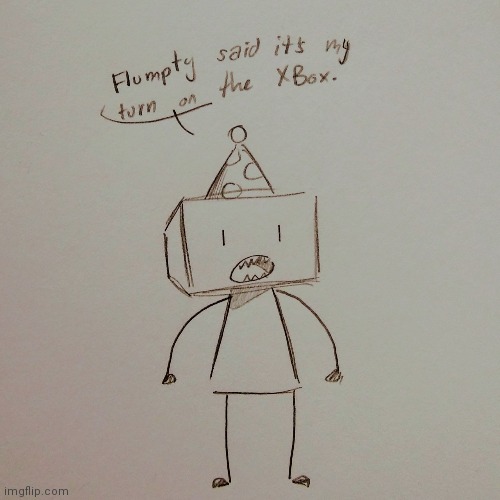 Flumpty said it's my
turn on the XBox.
imgflip.com